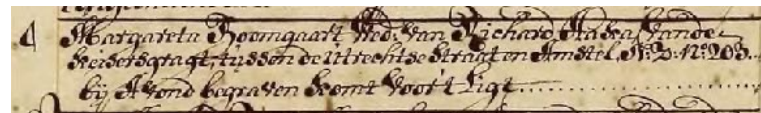 4 Margareta Boomgaart Wed: van Richard Aaka, van de
Keisersgragt, tussen de Utrechtse Straat en Amstel. N: 2: N:o 203.
bij Avond begraven komt voor 't ligt